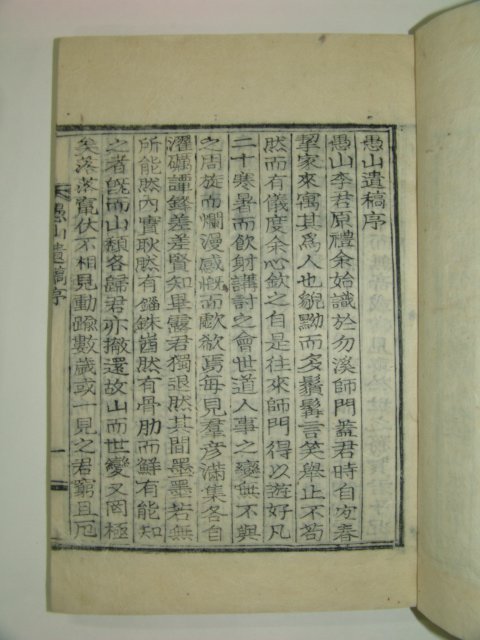 愚山遺稿序
愚山李君原禮余始識於勿溪師門蓋君時自宜春
挈家來寓其爲人也貌黝而多鬚髯言笑擧止不苟
然而有儀度余心欽之自是往來師門得以遊好凡
二十寒暑而飮射講討之會世道人事之變無不與
之周旋而爛漫感慨而歔欷焉每見羣彦滿集各自
濯礪譚鋒差差賢知畢露君獨退然其間墨墨若無
所能然內實耿然有錙銖酋然有骨肋而鮮有能知
之者旣而山頹各歸君亦撤還故山而世變又罔極
矣落落竄伏不相見動踰數歲或一見之君窮且厄
愚山遺稿序
一